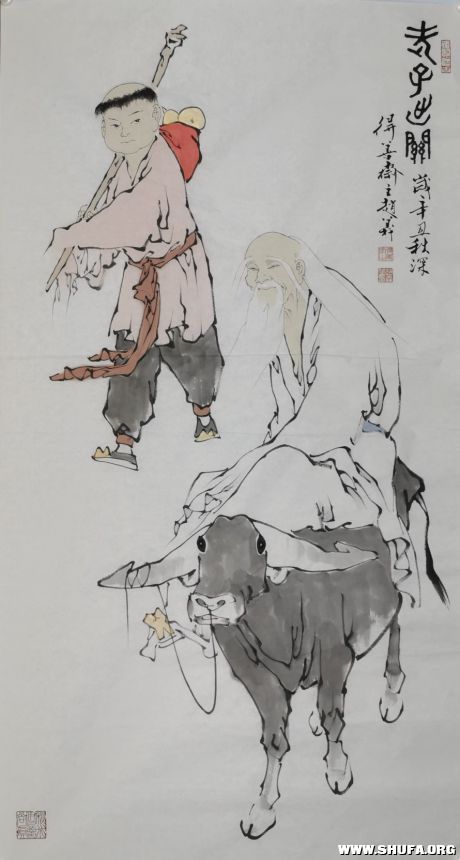 老子出關
歲辛丑秋深
得善齋主趙義
WWW.SHUFA.ORG